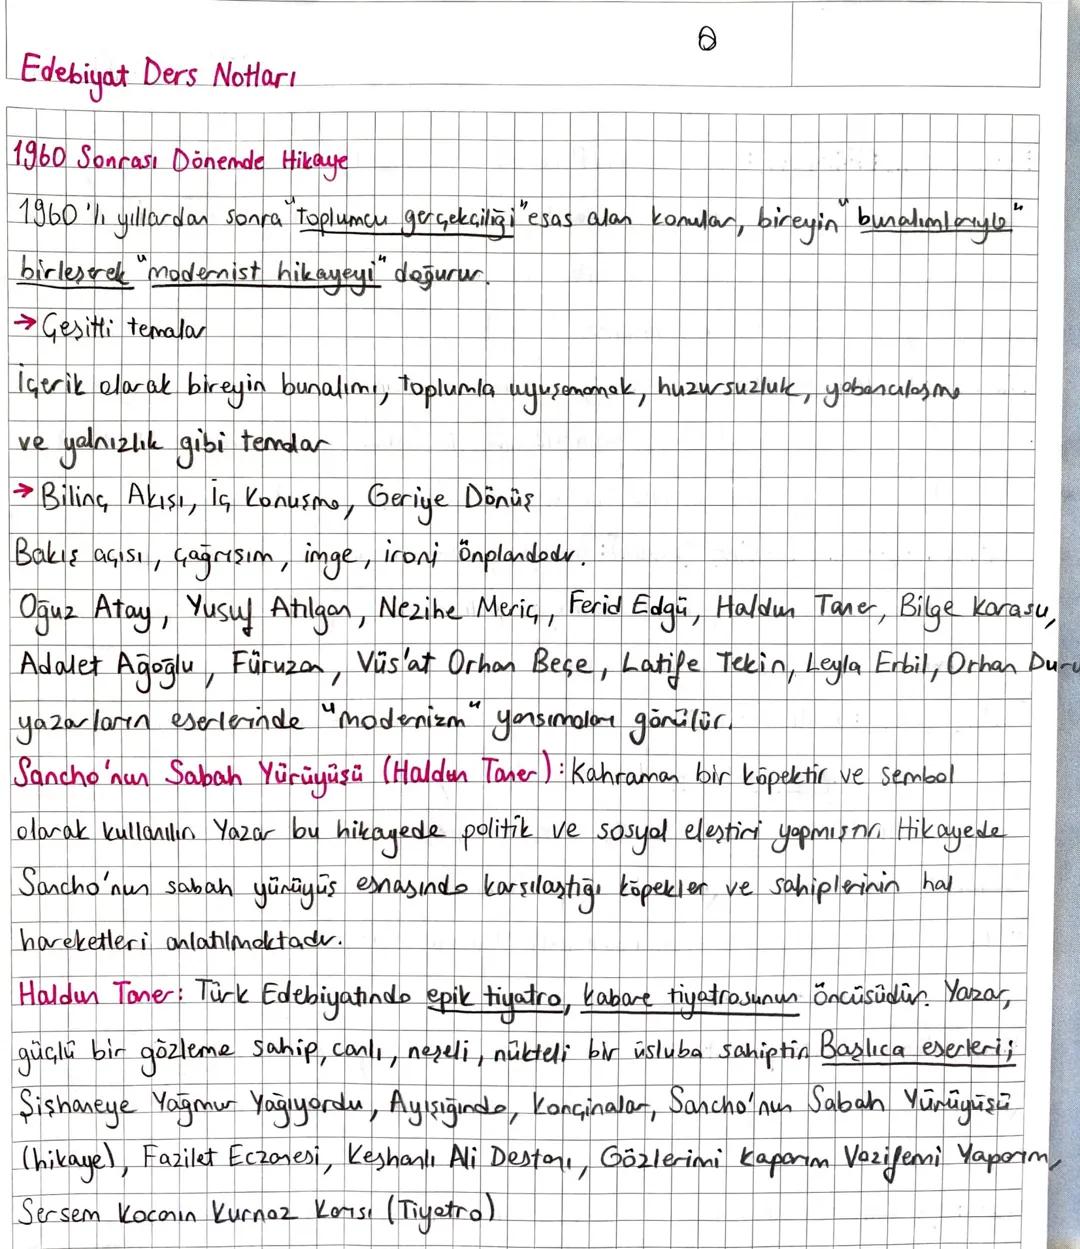 Edebiyat Ders Notları
1960 Sonrası Dönemde Hikaye
1960'lı yıllardan sonra "toplumcu gerçekçiliği" esas alan konular, bireyin "bunalımlarıyla"
birleşerek "modernist hikayeyi" doğurur.
→ Çeşitli temalar
İçerik olarak bireyin bunalımı, toplumla uyuşamamak, huzursuzluk, yabancılaşma
ve yalnızlık gibi temalar
→ Bilinç Akışı, İç Konuşma, Geriye Dönüş
Bakış açısı, çağrışım, imge, ironi önplandadır.
Oğuz Atay, Yusuf Atılgan, Nezihe Meriç, Ferid Edgü, Haldun Taner, Bilge Karasu,
Adalet Ağoğlu, Füruzan, Vüs'at Orhan Beşe, Latife Tekin, Leyla Erbil, Orhan Duru
yazarların eserlerinde "modernizm" yansımaları görülür.
Sancho'nun Sabah Yürüyüşü (Haldun Taner): Kahraman bir köpektir ve sembol
olarak kullanılır. Yazar bu hikayede politik ve sosyal eleştiri yapmıştır. Hikayede
Sancho'nun sabah yürüyüş esnasında karşılaştığı köpekler ve sahiplerinin hal
hareketleri anlatılmaktadır.
Haldun Taner: Türk Edebiyatında epik tiyatro, kabare tiyatrosunun öncüsüdür. Yazar,
güçlü bir gözleme sahip, canlı, neşeli, nükteli bir üsluba sahiptir. Başlıca eserleri;
Şişhaneye Yağmur Yağıyordu, Ayışığında, Konçinalar, Sancho'nun Sabah Yürüyüşü
(hikaye), Fazilet Eczanesi, Keshanlı Ali Destanı, Gözlerimi Kaparım Vazifemi Yaparım,
Sersem Kocanın Kurnaz Karısı (Tiyatro)